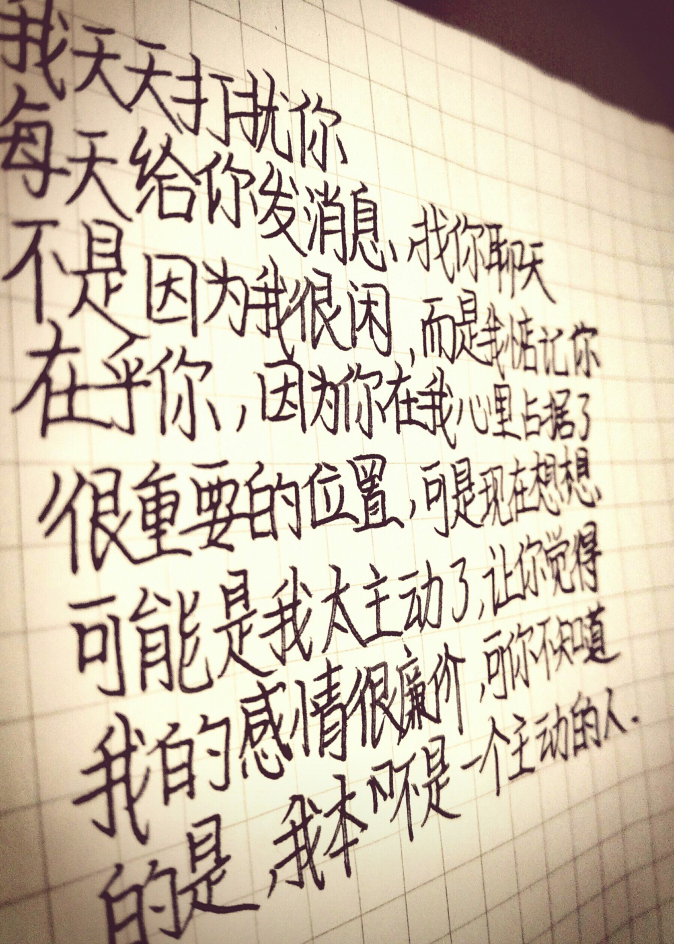 我天天打扰你
每天给你发消息、找你聊天
不是因为我很闲,而是我惦记你
在乎你,因为你在我心里占据了
很重要的位置,可是现在想想、
可能是我太主动了,让你觉得
我的感情很廉价,可你不知道
的是,我本不是一个主动的人.